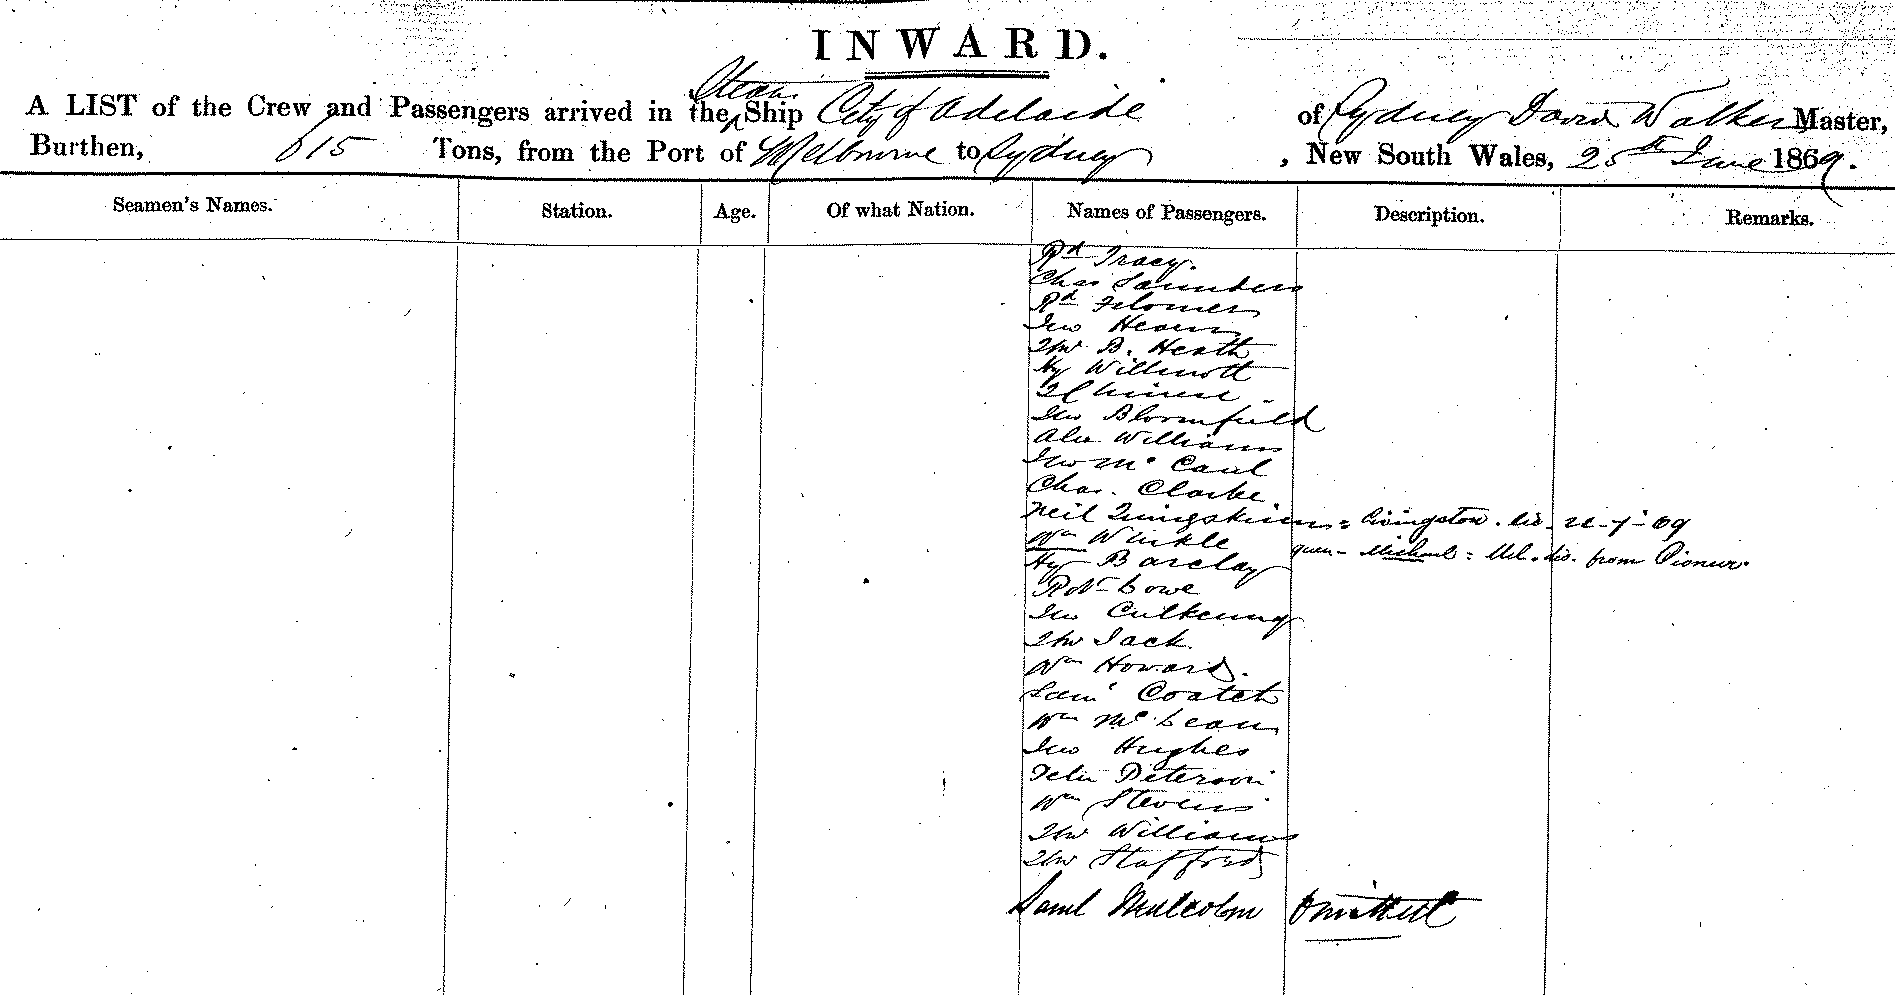 INWARD.
Steam
A LIST of the Crew and Passengers arrived in the ^ Ship City of Adelaide of Sydney David Walker Master,
Burthen, 615 Tons, from the Port of Melbourne to Sydney, New South Wales, 25th June 1869.
Seamen's Names. Station. Age. Of what Nation. Names of Passengers. Description. Remarks.
Rd Tracy.
Chas Saunders
Rd
Jno
Thos B. Heath
Hy Willmott
Chinese
Jno Bloomfield
Alex Williams
Jno Mc Caul
Chas. Clarke
Neil = Livingston. 69
Wm Winkle Michael = from Pioneer
Hy Barclay
Robt Lowe
Jno
Thos Jack
Wm Howard.
Saml
Wm McLean
Jno Hughes
Peterson
Wm Stevens
Thos Williams
Thos Stafford
Saml Malcolm Omitted